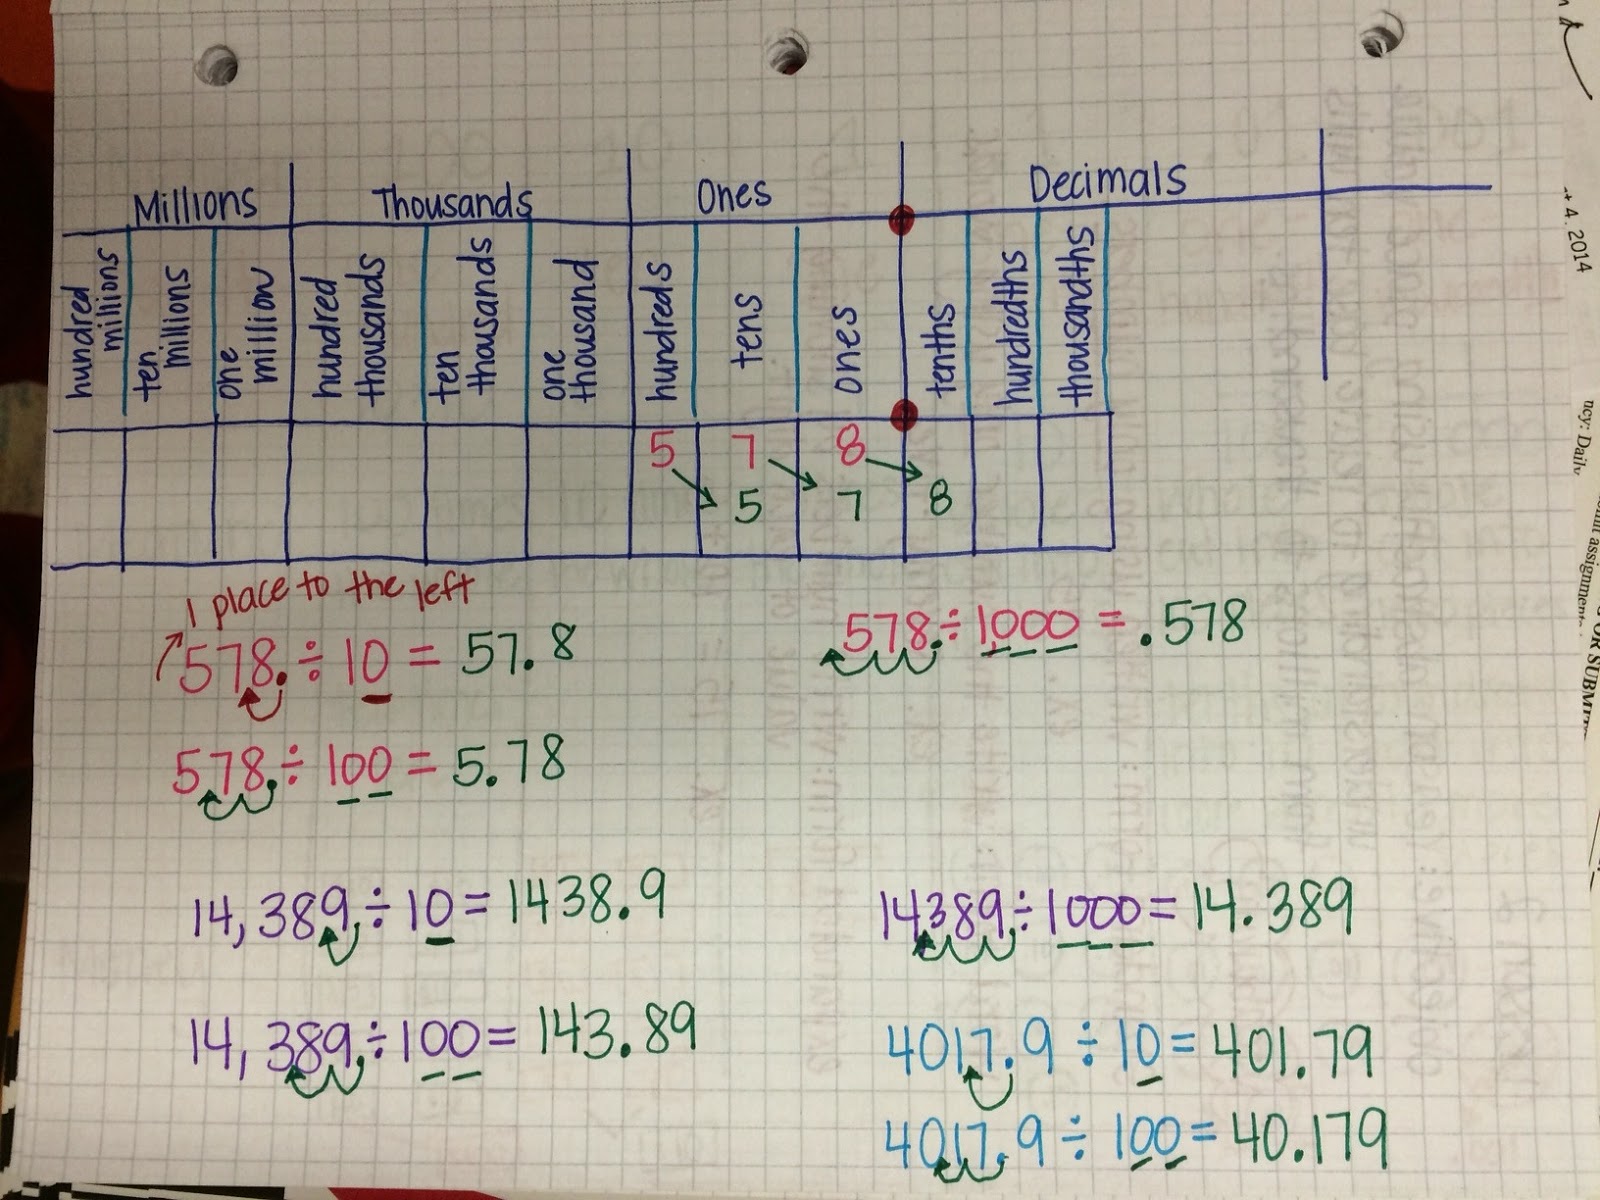 Millions Thousands Ones Decimals
hundred millions
ten millions
one million
hundred thousands
ten thousands
one thousand
hundreds
tens
ones
tenths
hundredths
thousandths
5 7 8
5 7 8
1 place to the left
578. ÷ 10 = 57.8
578. ÷ 1000 = .578
578. ÷ 100 = 5.78
14,389. ÷ 10 = 1438.9
14389. ÷ 1000 = 14.389
14,389. ÷ 100 = 143.89
4017.9 ÷ 10 = 401.79
4017.9 ÷ 100 = 40.179
4, 2014
ncy: Daily
assignment
OR SUBMIT